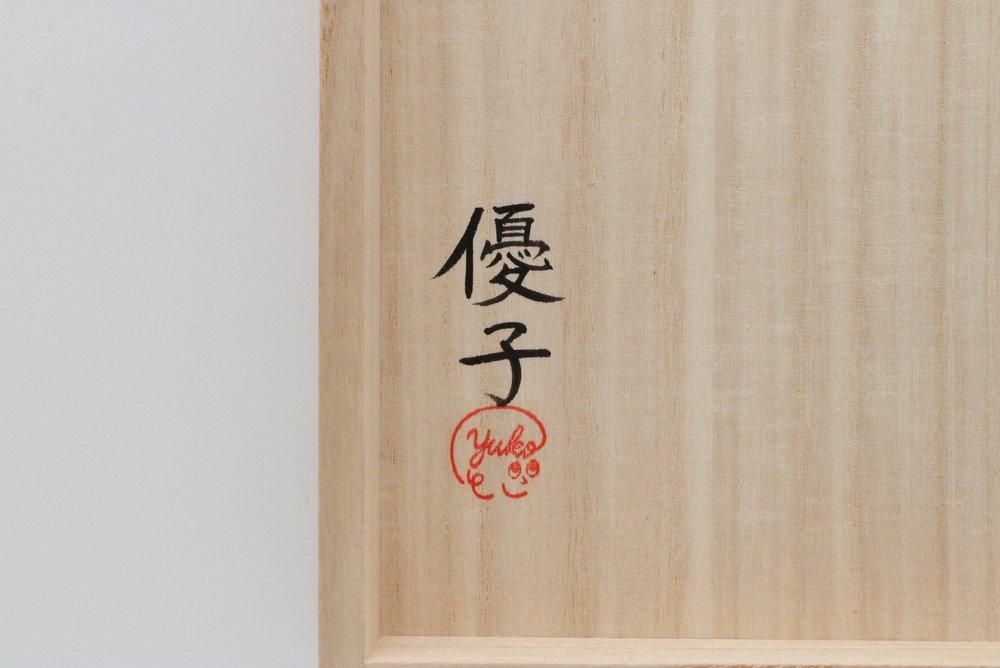 優子
Yuko